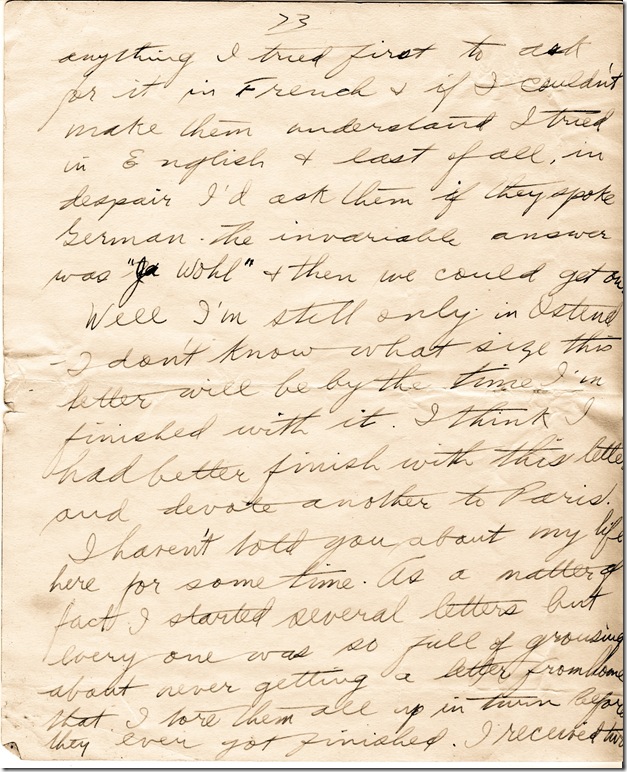 23
anything I tried first to ask
for it in French & if I couldn't
make them understand I tried
in English & last of all, in
despair I'd ask them if they spoke
German. The invariable answer
was "Ja Wohl" & then we could get on.
Well I'm still only in Ostend
I don't know what size this
letter will be by the time I'm
finished with it. I think I
had better finish with this letter
and devote another to Paris.
I haven't told you about my life
here for some time. As a matter of
fact I started several letters but
every one was so full of grousing
about never getting a letter from home
that I tore them all up in turn before
they ever got finished. I received